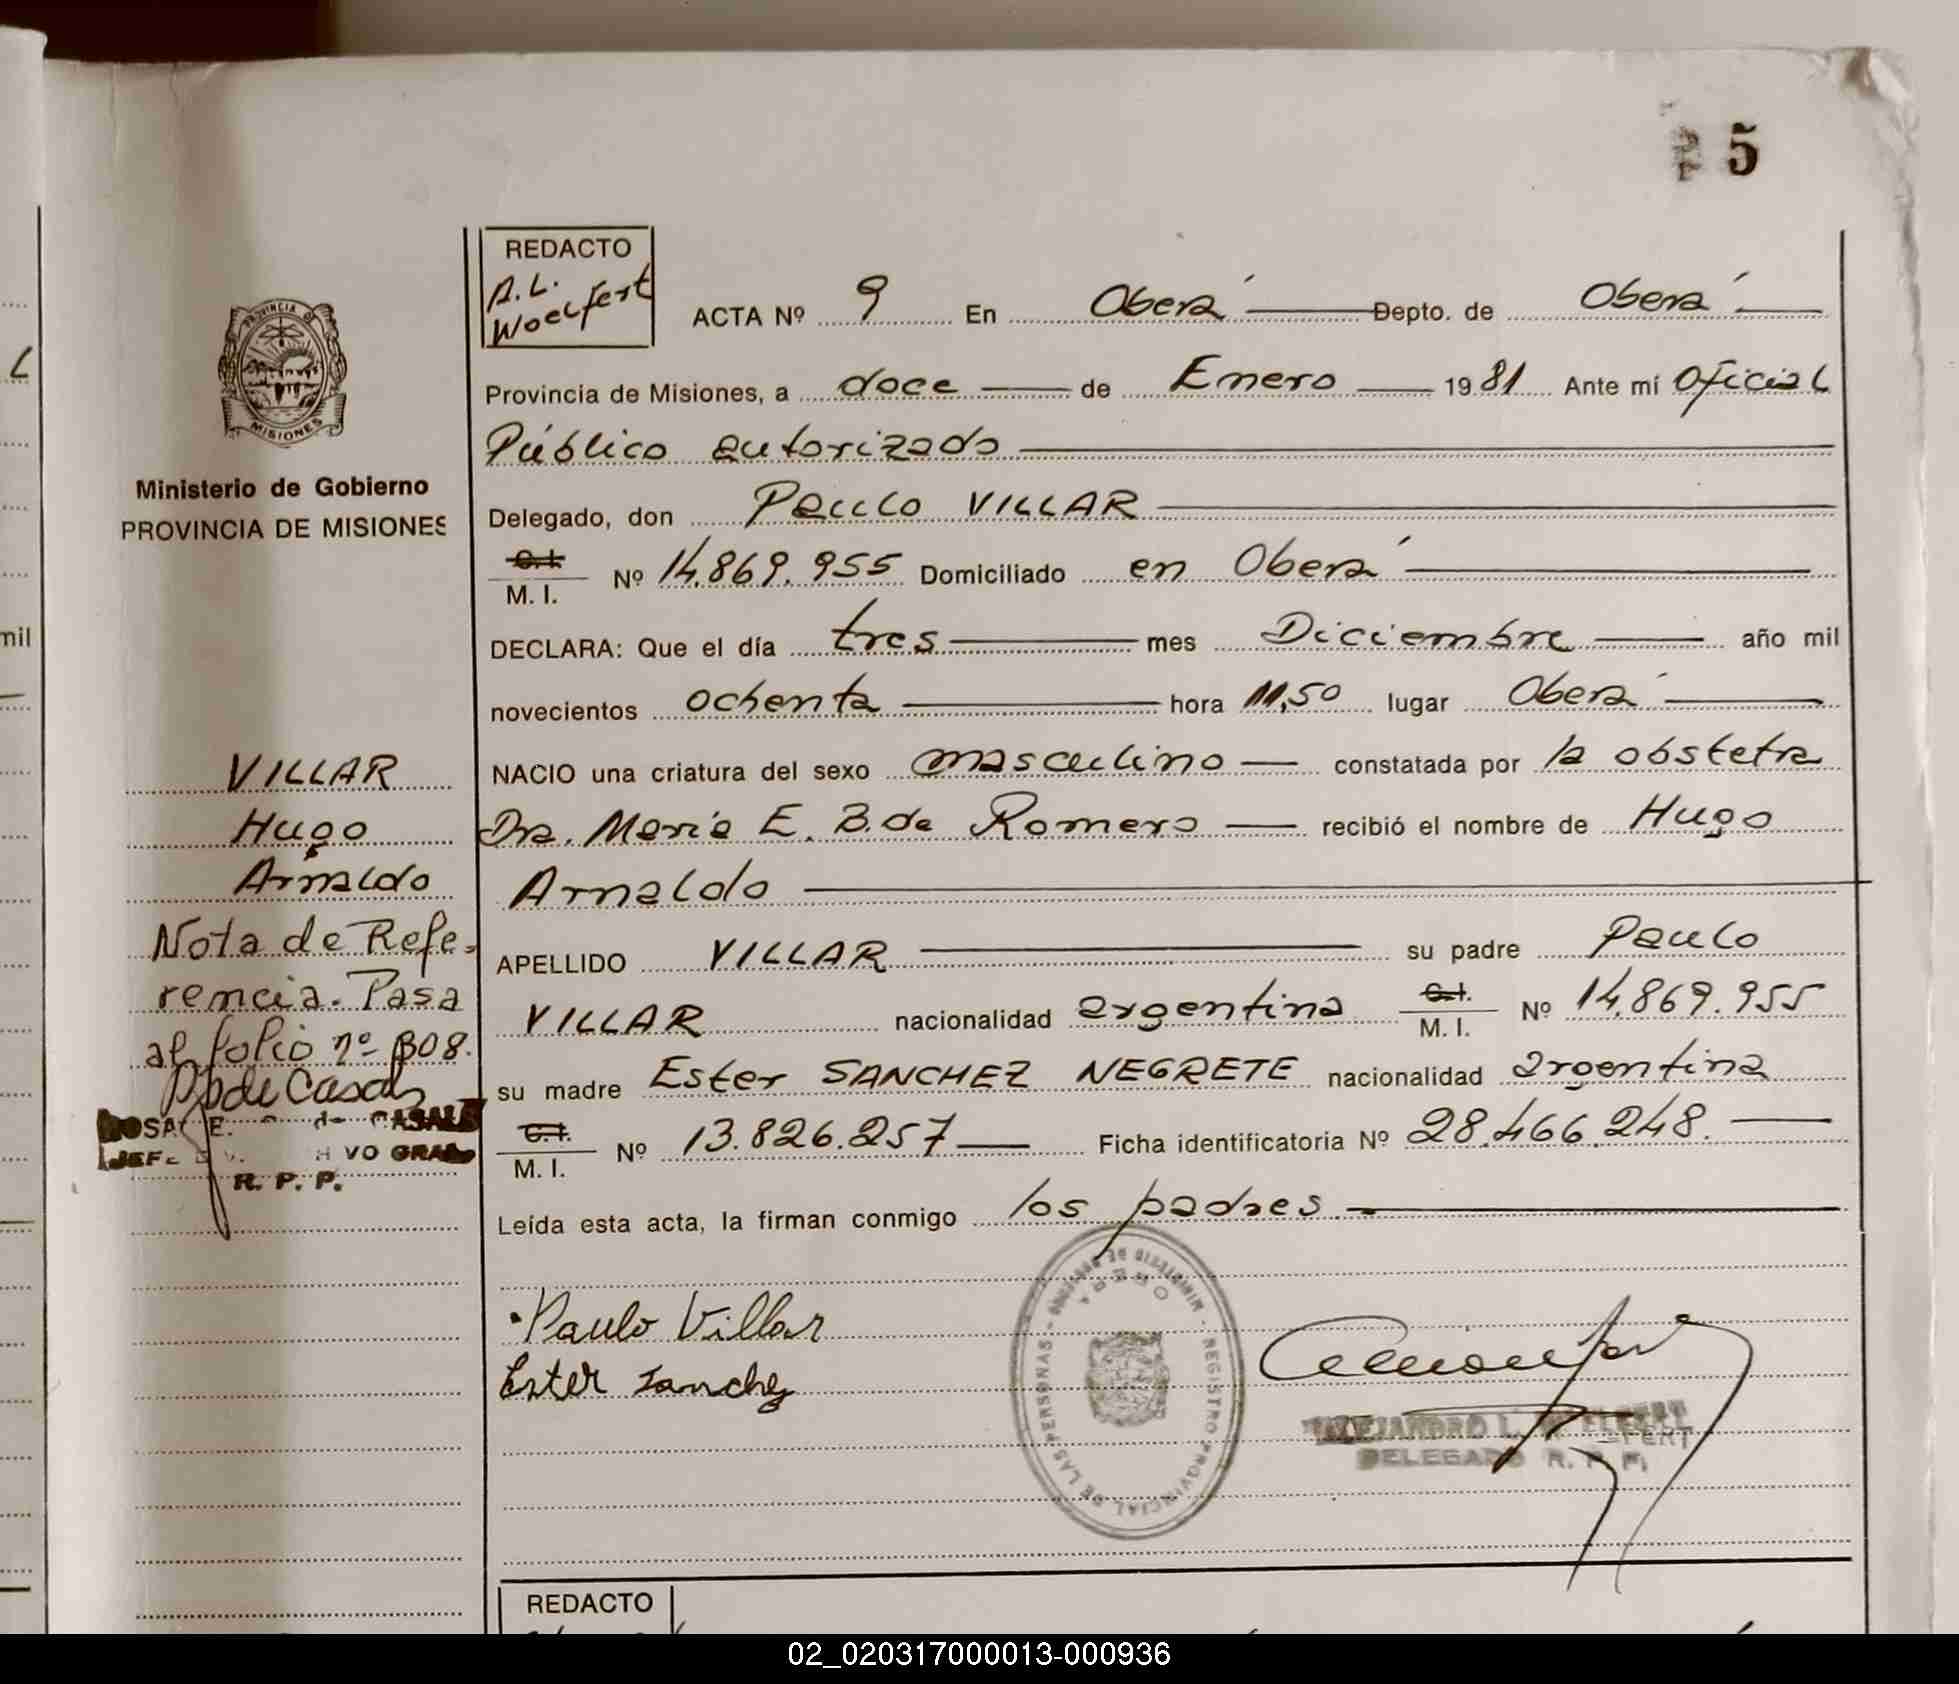 5
REDACTO
A. L.
Woelfert
ACTA Nº 9 En Oberá Depto. de Oberá
Provincia de Misiones, a doce de Enero 1981 Ante mí Oficial
Público autorizado
Delegado, don Paulo VILLAR
C.I.
M. I. Nº 14.869.955 Domiciliado en Oberá
DECLARA: Que el día tres mes Diciembre año mil
novecientos ochenta hora 11,50 lugar Oberá
NACIO una criatura del sexo masculino constatada por la obstetra
Dra. María E. B. de Romero recibió el nombre de Hugo
Arnaldo
APELLIDO VILLAR su padre Paulo
VILLAR nacionalidad argentina C.I. M. I. Nº 14.869.955
su madre Ester SANCHEZ NEGRETE nacionalidad argentina
C.I.
M. I. Nº 13.826.257 Ficha identificatoria Nº 28.466.248.
Leída esta acta, la firman conmigo los padres
Paulo Villar
Ester Sanchez
MINISTERIO DE GOBIERNO - REGISTRO PROVINCIAL DE LAS PERSONAS
OBERA
ALEJANDRO L. WOELFERT
DELEGADO R. P. P.
REDACTO
PROVINCIA DE
MISIONES
Ministerio de Gobierno
PROVINCIA DE MISIONES
VILLAR
Hugo
Arnaldo
Nota de Refe-
rencia. Pasa
al folio nº 308.
de Casals
ROSA E. de CASALS
R. P. P.
mil
02_020317000013-000936